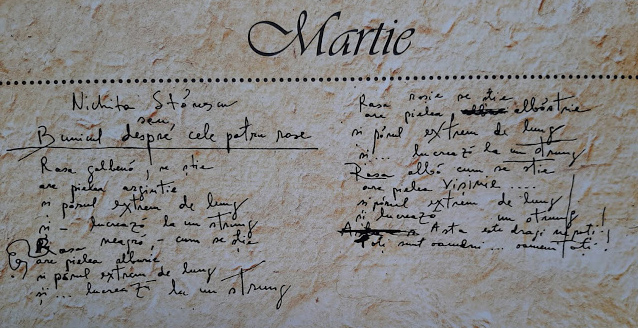 Martie
Nichita Stănescu
sau
Bunicul despre cele patru rase
Rasa galbenă, se știe
are pielea argintie
și părul extrem de lung
și - lucrează la un strung
Rasa neagră - cum se știe
are pielea alburie
și părul extrem de lung
și ... lucrează la un strung
Rasa roșie se știe
are pielea albăstrie
și părul extrem de lung
și... lucrează la un strung
Rasa albă cum se știe
are pielea vișinie ....
și părul extrem de lung
și lucrează un strung!
Asta este dragi nepoți!
Toți sunt oameni... oameni toți!